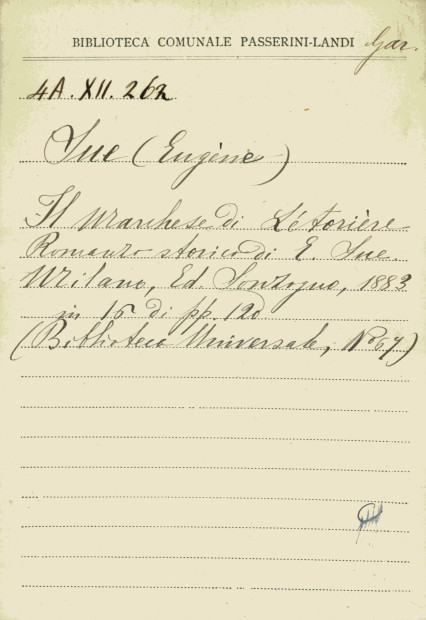 BIBLIOTECA COMUNALE PASSERINI-LANDI Gar.
4A. XII. 262
Sue (Eugène)
Il Marchese di Létorière
Romanzo storico di E. Sue.
Milano, Ed. Sonzogno, 1883
in 16 di pp. 120
(Biblioteca Universale, No 67)